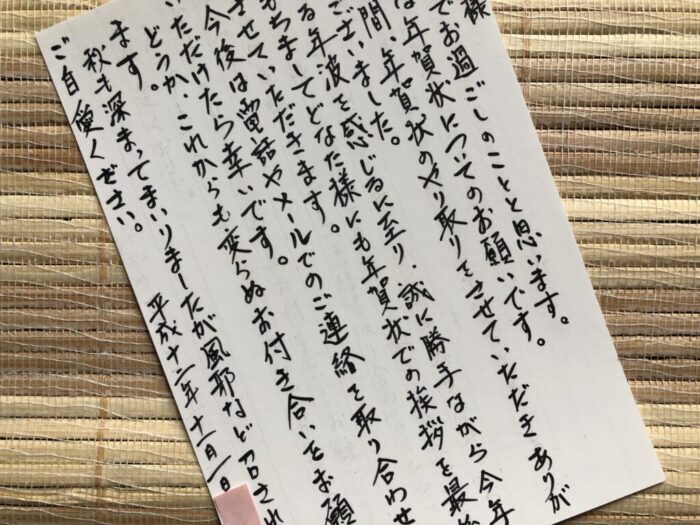 様
でお過ごしのことと思います。
は年賀状についてのお願いです。
間、年賀状のやり取りをさせていただきありが
ございました。
る年波を感じるに至り、誠に勝手ながら今年
もちましてどなた様にも年賀状での挨拶を最
させていただきます。
今後は電話やメールでのご連絡を取り合わせ
いただけたら幸いです。
どうか、これからも変らぬお付き合いをお願
ます。
秋も深まってまいりましたが風邪など召され
ご自愛ください。
平成十二年十一月一日